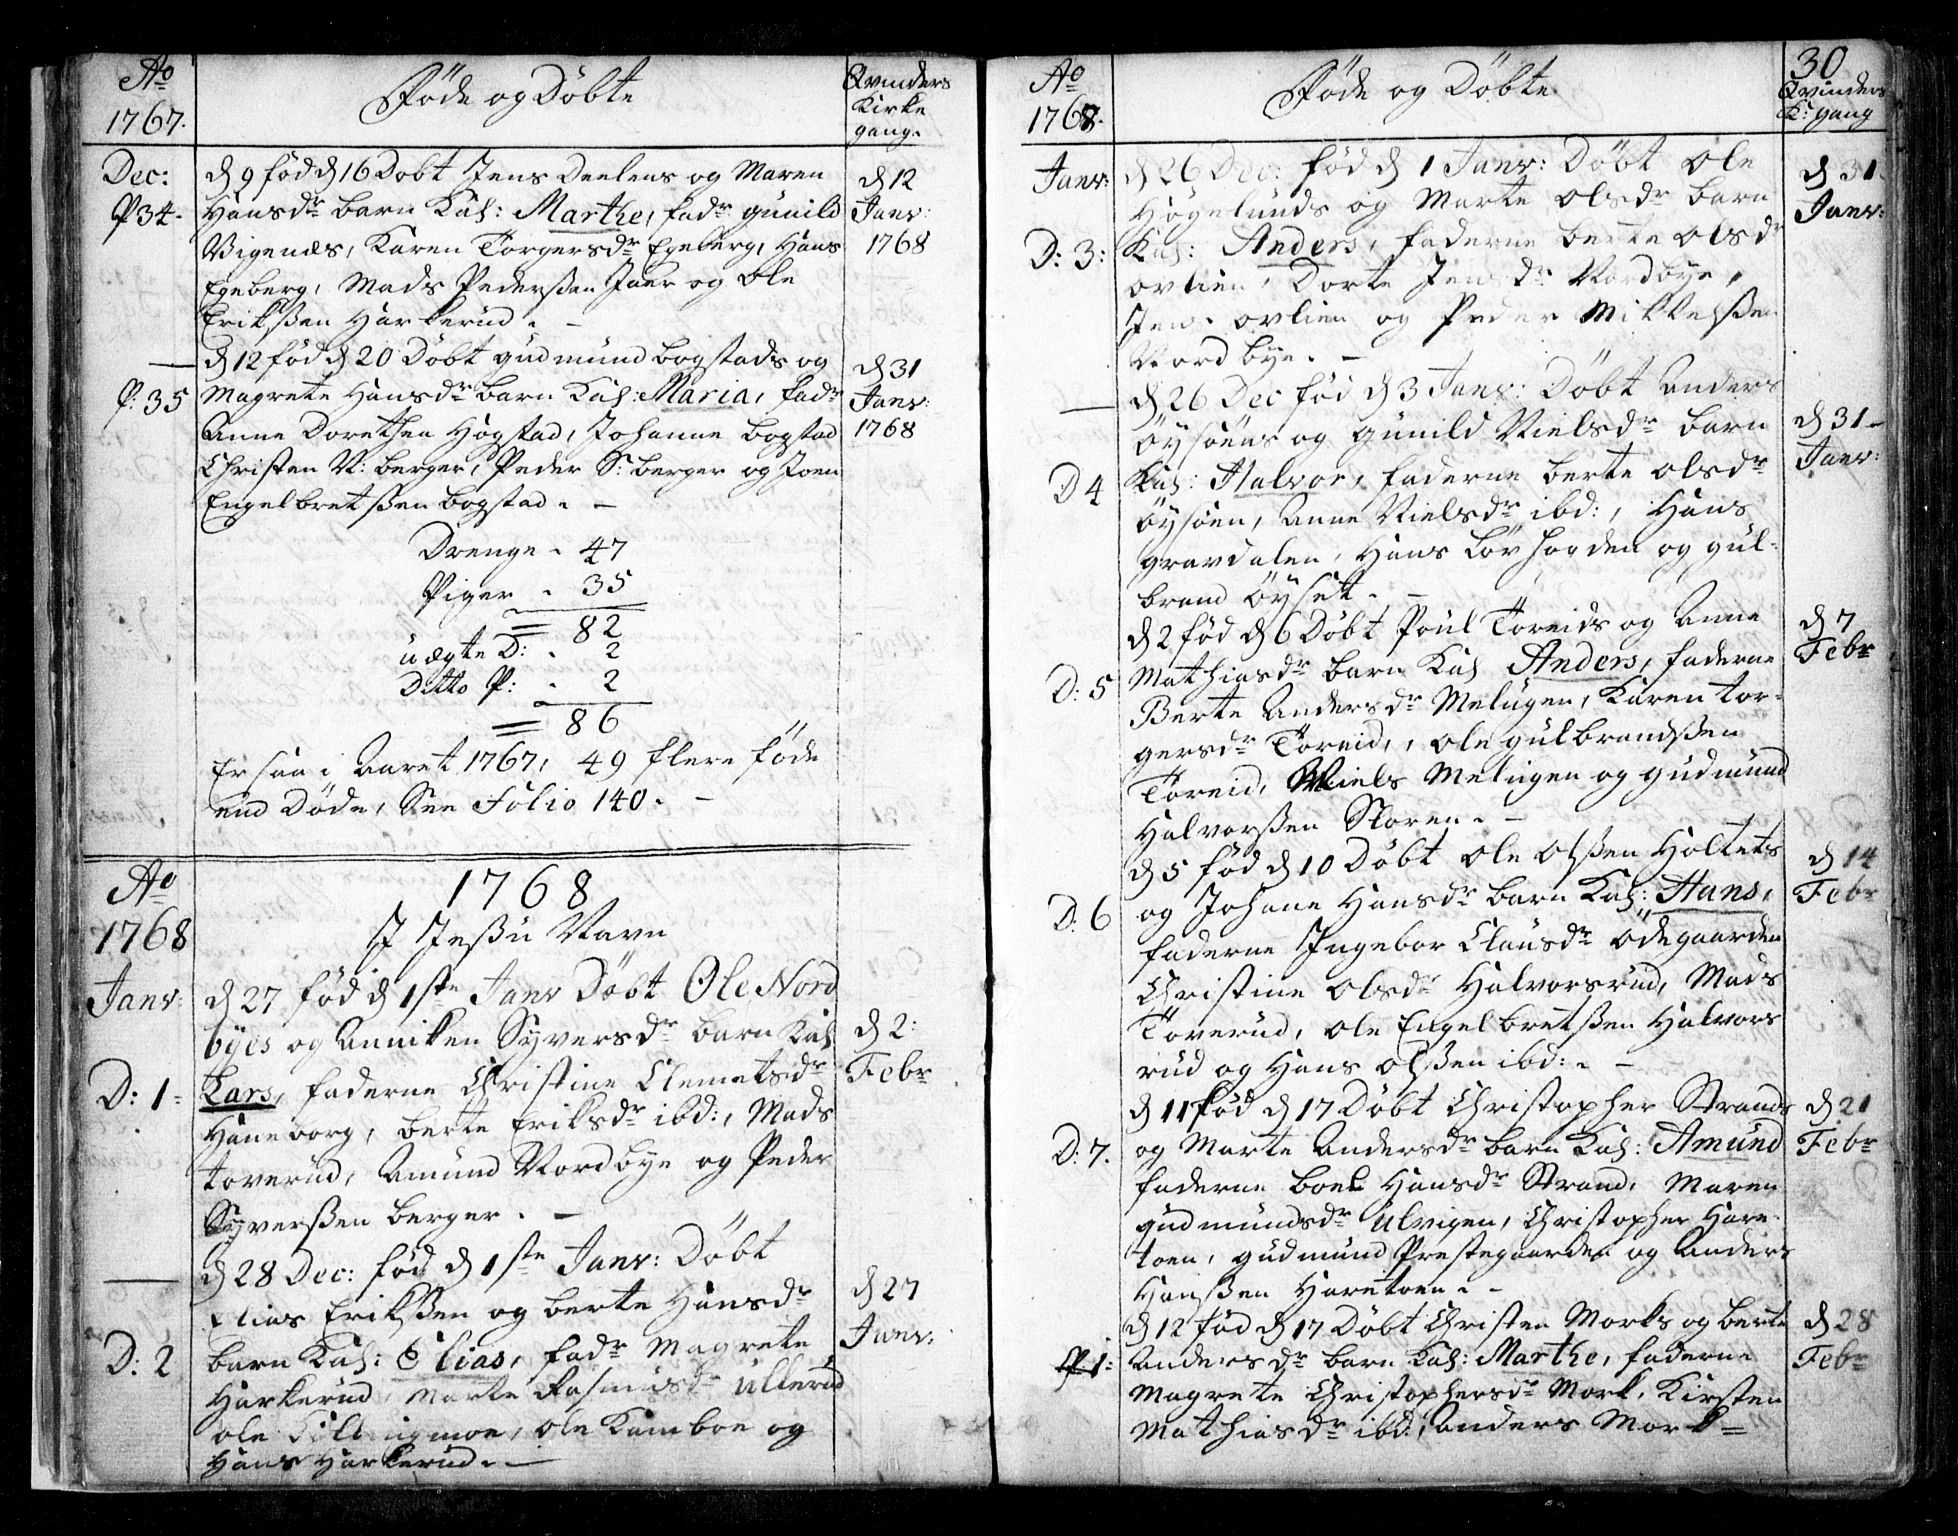 Ao
1767.
Føde og Døbte
Qvinders
Kirke
gang.
Dec:
P 34.
d 9 fød d 16 Døbt Jens Deelens og Maren
Hansdr barn Kal: Marthe, fadr Gunild
Vigenæs, Karen Torgersdr Egeberg, Hans
Egeberg, Mads Pederssen Juer og Ole
Erikssen Harkerud. -
d 12
Janv:
1768
P: 35
d 12 fød d 20 Døbt Gudmund bogstads og
Magrete Hansdr barn Kal: Maria, fadr
Anne Dorethea Høgstad, Johanne bogstad
Christen N: berger, Peder S: berger og Joen
Engelbretssen bogstad. -
d 31
Janv:
1768
Drenge - 47
Piger - 35
= 82
uægte D: - 2
Ditto P: - 2
= 86
Er saa i Aaret 1767, 49 flere føde
end Døde, See Folio 140. -
Ao
1768
1768
J Jessu Navn
Janv:
d 27 fød d 1ste Janv Døbt Ole Nord
byes og Anniken Syversdr barn Kal
D: 1-
Lars, faderne Christine Clemetsdr
Haneborg, berte Eriksdr ibd:, Mads
Toverud, Amund Nordbye og Peder
Syverssen berger. -
d 2:
Febr
d 28 Dec: fød d 1ste Janv: Døbt
Elias Erikssen og berte Hansdr
D: 2
barn Kal: Elias, fadr Magrete
Harkerud, Marte Rasmusdr Ullerud
ole ole Kamboe og
Hans Harkerud. -
d 27
Janv:
Ao
1768.
Føde og Døbte
30
Qvinders
K: gang
Janv:
d 26 Dec: fød d 1 Janv: Døbt Ole
Høgelunds og Marte Olsdr barn
D: 3:
Kal: Anders, faderne berte Olsdr
ovlien, Dorte Jensdr Nordbye,
Jens ovlien og Peder Mikkelssen
Nordbye. -
d 31.
Janv:
d 26 Dec fød d 3 Janv: Døbt Anders
Øysøens og Gunild Nielsdr barn
D 4
Kal: Halvor, faderne berte Olsdr
Øysøen, Anne Nielsdr ibd:, Hans
gravdalen, Hans Løvhogden og Gul-
brand Øyset. -
d 31 -
Janv:
d 2 fød d 6 Døbt Poul Toreids og Anne
D: 5
Mathiasdr barn Kal Anders, faderne
Berte Andersdr Melugen, Karen Tor-
gersdr Toreid, Ole Gulbrandssen
Toreid, Niels Melugen og Gudmund
Halvorssen Sloren. -
d 7
Febr
d 5 fød d 10 Døbt Ole Olssen Holtets
D: 6
og Johane Hansdr barn Kal: Hans,
faderne Ingebor Clausdr Ødegaarden
Christine Olsdr Halvorsrud, Mads
Toverud, Ole Engelbretssen Halvors
rud og Hans Olssen ibd: -
d 14
Febr
d 11 fød d 17 Døbt Christopher Strands
D: 7.
og Marte Andersdr barn Kal: Amund
faderne boel Hansdr Strand, Maren
Gudmundsdr Ulvigen, Christopher Hare-
toen, Gudmund Prestegaarden og Anders
Hanssen Haretoen. -
d 21
Febr
d 12 fød d 17 Døbt Christen Morks og berte
P 1:
Andersdr barn Kal: Marthe, faderne
Magrete Christophersdr Mork, Kirsten
Mathiasdr ibd:, Anders Mork =
d 28
Febr